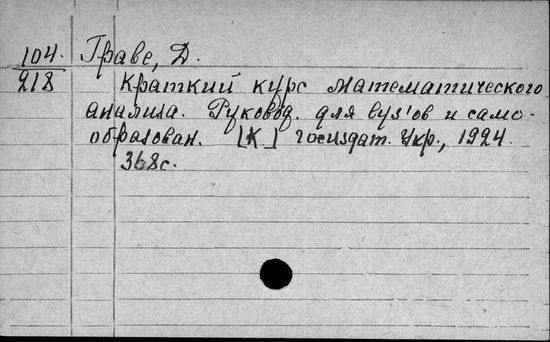 104. Граве, Д.
218 Краткий курс математического
анализа. Руковод. для вуз'ов и само-
образован. [К] госиздат. Укр., 1924.
368с.